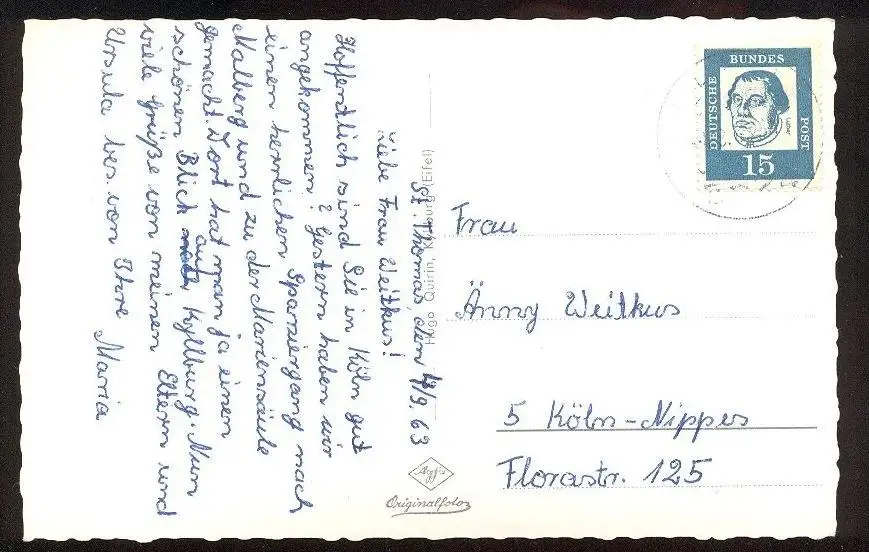 St. Thomas, den 4/9. 63
Liebe Frau Weitkus!
Hoffentlich sind Sie in Köln gut
angekommen? Gestern haben wir
einen herrlichen Spaziergang nach
Malberg und zu der Mariensäule
gemacht. Dort hat man ja einen
schönen Blick auf Kyllburg. Nun
viele Grüße von meinen Eltern und
Ursula bes. von Ihre Maria
Hugo Quirin, Kyllburg (Eifel)
Agfa
Originalfoto
DEUTSCHE
BUNDES
POST
15
Frau
Änny Weitkus
5 Köln-Nippes
Florastr. 125